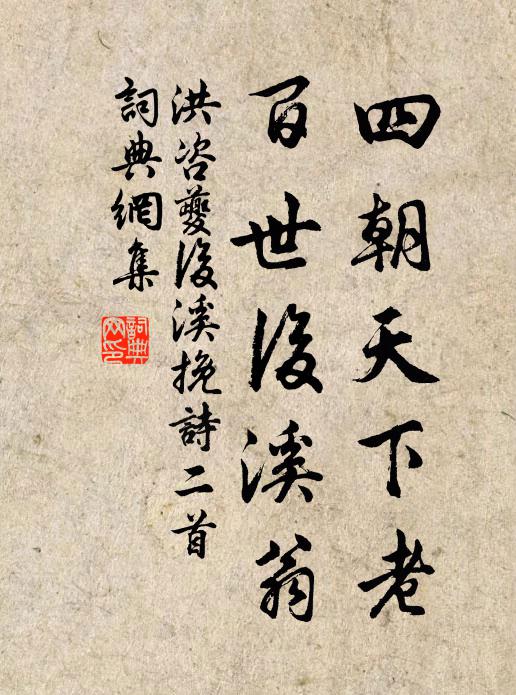 四朝天下老
百世後溪翁
洪咨夔後溪挽詩二首
詞典網集
詞典網印